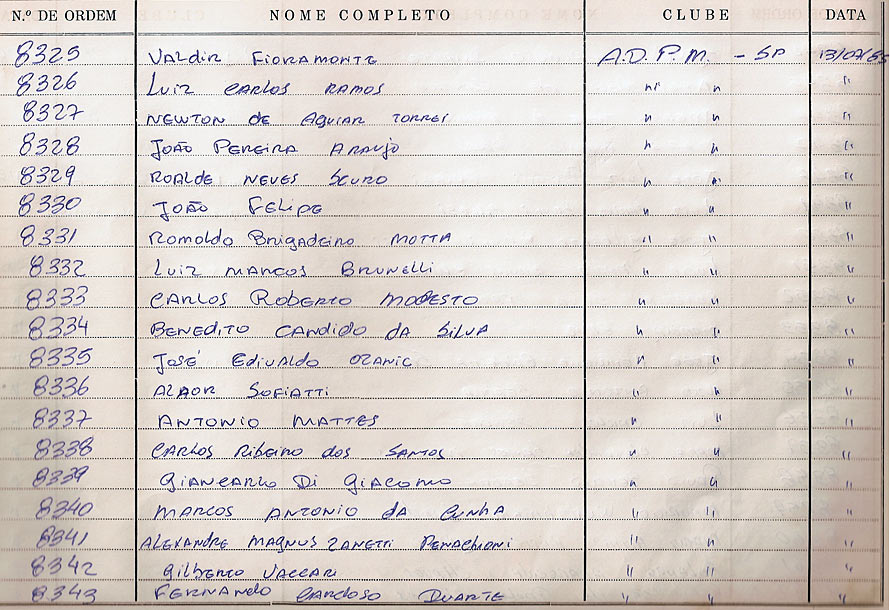 N.º DE ORDEM NOME COMPLETO CLUBE DATA
8325 Valdir Fioramonte A.D.P.M. - SP 13/07/85
8326 Luiz Carlos Ramos " " "
8327 Newton de Aguiar Torres " " "
8328 João Pereira Araujo " " "
8329 Roalde Neves Scuro " " "
8330 João Felipe " " "
8331 Romoldo Brigadeiro Motta " " "
8332 Luiz Marcos Brunelli " " "
8333 Carlos Roberto Modesto " " "
8334 Benedito Candido da Silva " " "
8335 José Edivaldo Ozanic " " "
8336 Sofiatti " " "
8337 Antonio Mattes " " "
8338 Carlos Ribeiro dos Santos " " "
8339 Giancarlo Di Giacomo " " "
8340 Marcos Antonio da Cunha " " "
8341 Alexandre Magnus Zanetti Penachioni " " "
8342 Gilberto Vaccari " " "
8343 Fernando Cardoso Duarte " " "